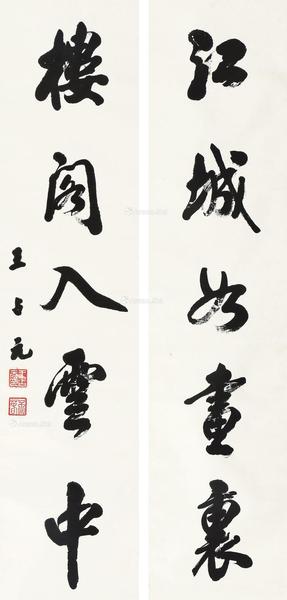 江城如畫裏
樓阁入雲中
王占元